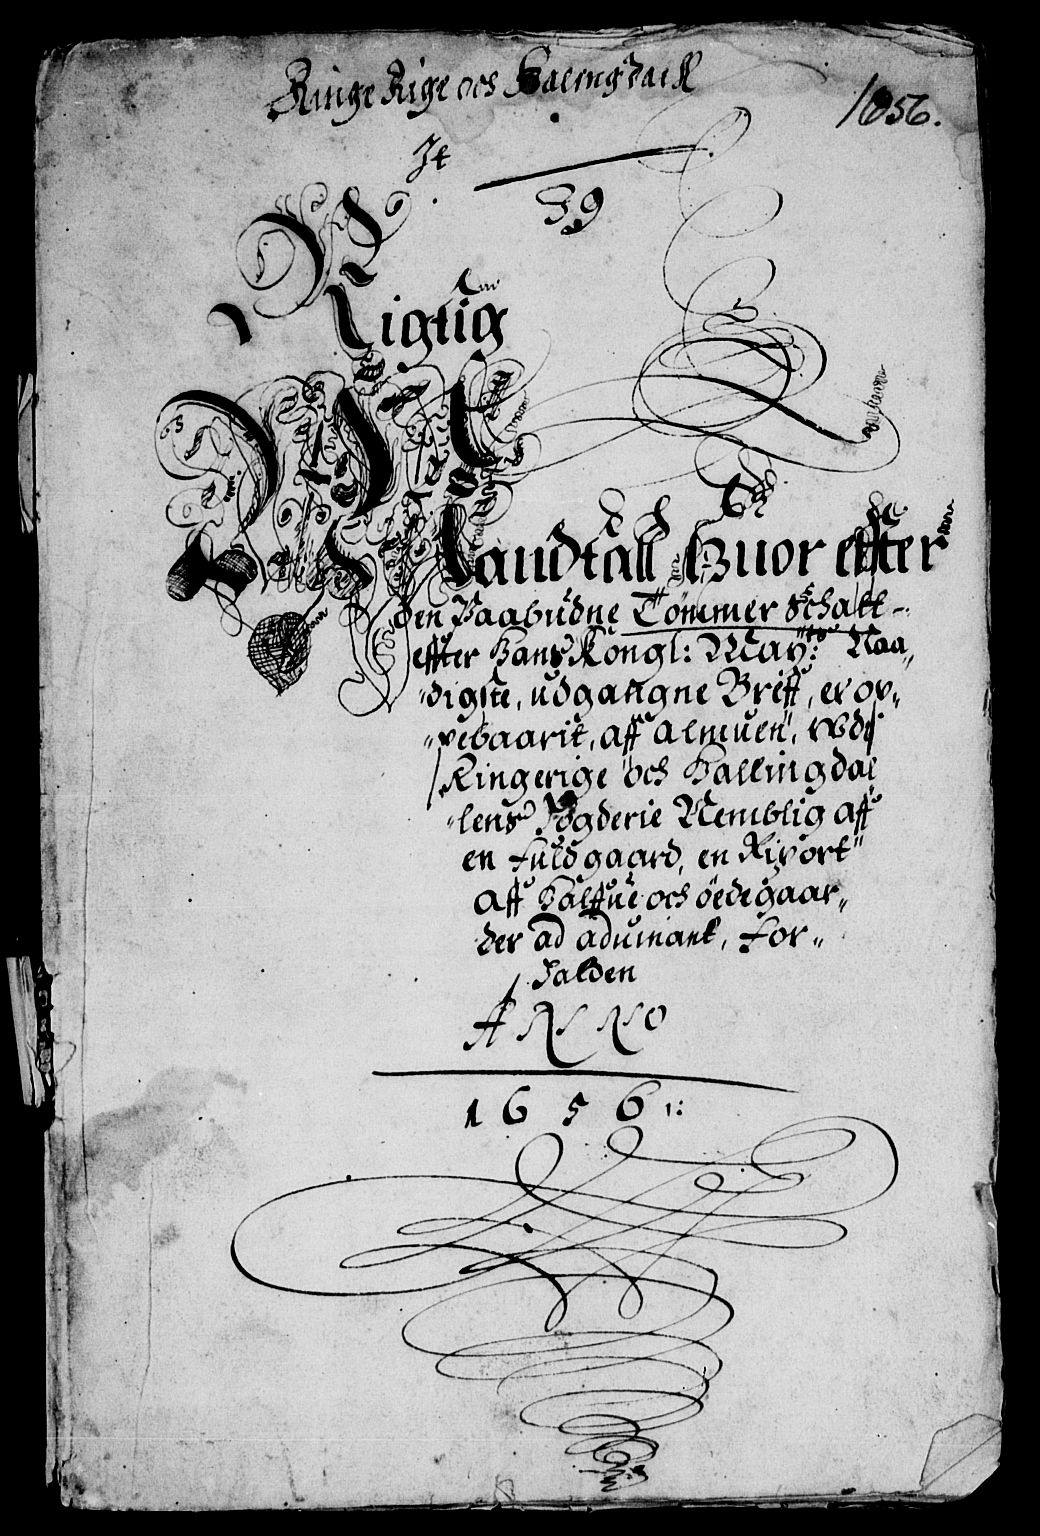 Ringe Rige och Halingdaell
1656.
It
39
Rigtig
Mandtall Huor effter
den Paabudne Tømmer Schatt
effter Hans Kongl: May:tts Naa„
digste, udgangne Breff, er op„
„pebaarit, aff Almuen, udj
Ringerige och Hallingdal
lens Fogderie Nemblig aff
en fuldgaard, en Rixort
Aff Halfue och ødegaar„
der ad aduinant, for„
falden
ANNO
1656: